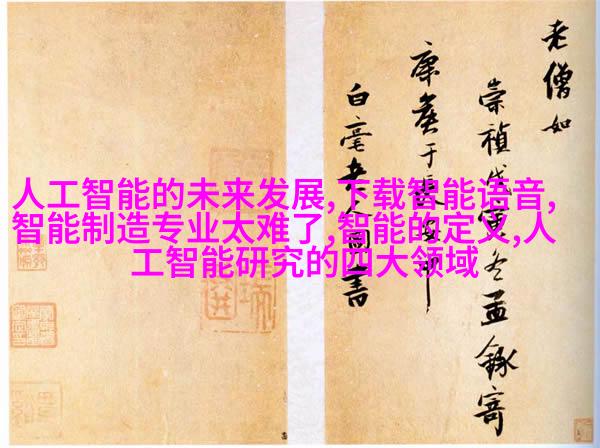 人工智能的未来发展,下载智能语音,
智能制造专业太难了,智能的定义,人
工智能研究的四大领域
老僧如
崇禎戊寅冬孟錄寄
康矦于長安
白毫書